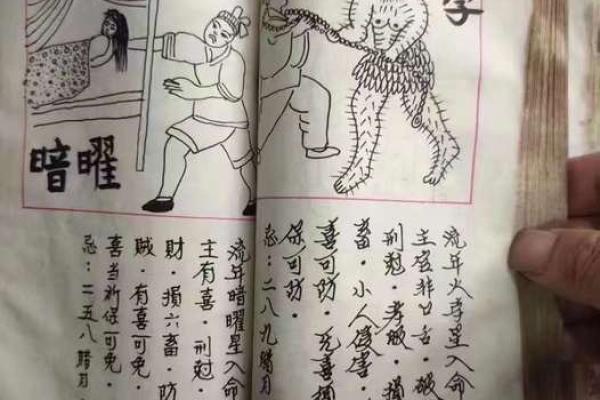 孛
流年火孛星入命
主官非口舌·破
刑愆·孝服·損
畜·小人侵害·
喜可防·无喜損
保可防·
忌：二八九腊月
暗曜
流年暗曜星入命
主有喜·刑愆·
財·損六畜·防
賊·有喜可免·
喜当祈保可免·
忌：二五八腊月·